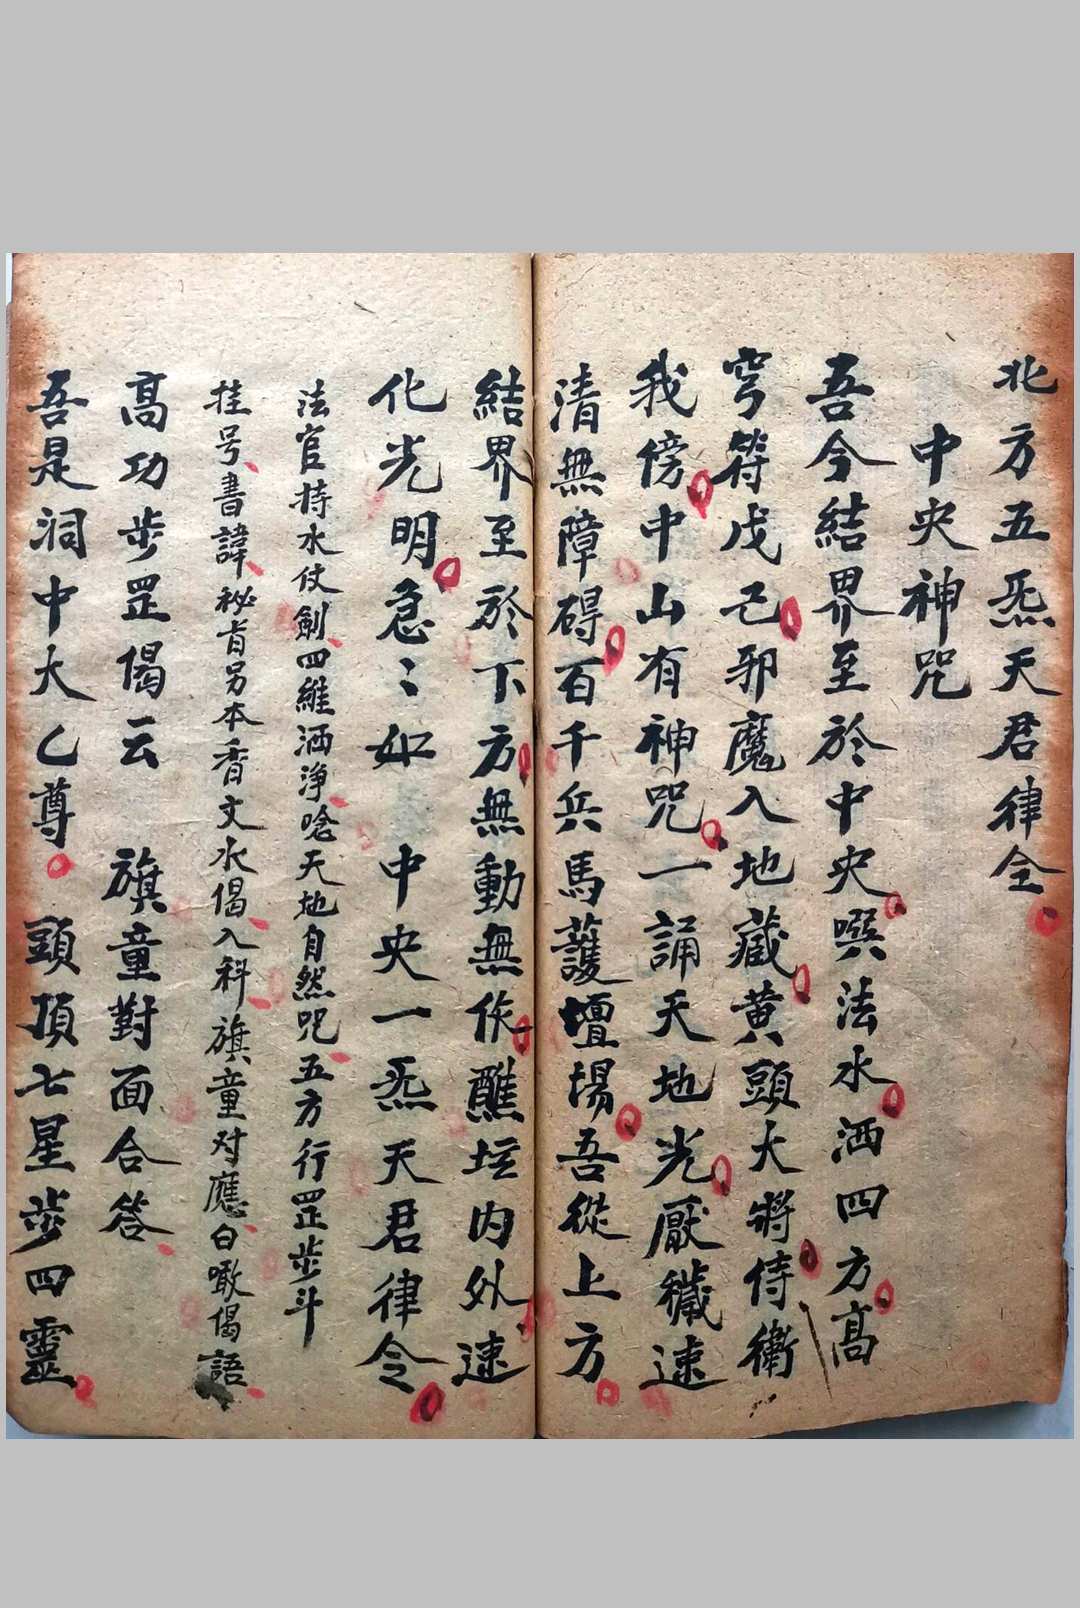 北方五炁天君律令
中央神咒
吾今結界至於中央噀法水洒四方高
穹符戊己邪魔入地藏黄頭大將侍衛
我傍中山有神咒一誦天地光厭穢速
清無障碍百千兵馬護壇場吾從上方
結界至於下方無動無作醮坛内外速
化光明急〻如 中央一炁天君律令
法官持水仗劍四維洒净唸天地自然咒五方行罡步斗
挂号書諱祕旨另本香文水偈入科旗童对應白噉偈語
高功步罡偈云 旗童對面合答
吾是洞中大乙尊 頭頂七星步四靈